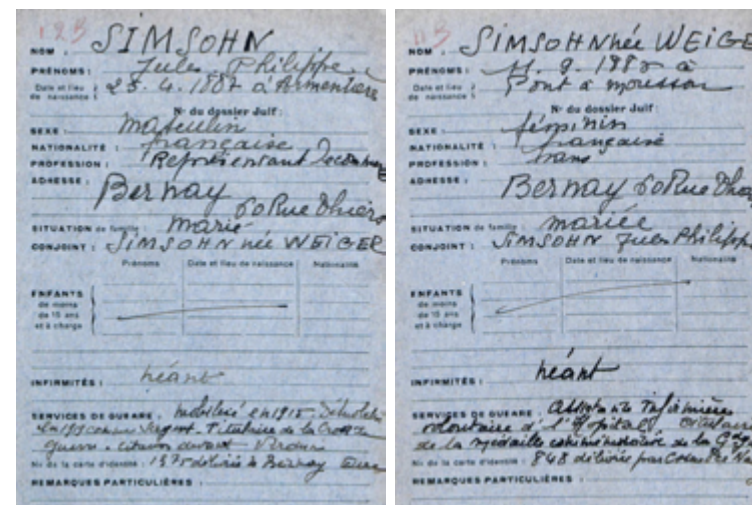 12B
NOM : SIMSOHN
PRÉNOMS : Jules Philippe
Date et lieu de naissance : 25. 4. 1887 à Armentière
N° du dossier Juif :
SEXE : masculin
NATIONALITÉ : française
PROFESSION : Représentant
ADRESSE :
Bernay 60 Rue Thiers
SITUATION de famille : marié
CONJOINT : SIMSOHN née WEIGER
Prénoms Date et lieu de naissance Nationalité
ENFANTS
de moins
de 15 ans
et à charge
INFIRMITÉS : néant
SERVICES DE GUERRE : mobilisé en 1915
Sergent. Titulaire de la Croix de
guerre. citation devant Verdun
N° de la carte d'identité : 1375 délivrée à Bernay Eure
REMARQUES PARTICULIÈRES :
11B
NOM : SIMSOHN née WEIGE
PRÉNOMS : 11. 9. 188 à
Date et lieu de naissance : Pont à mousson
N° du dossier Juif :
SEXE : féminin
NATIONALITÉ : française
PROFESSION : sans
ADRESSE :
Bernay 60 Rue Thie
SITUATION de famille : mariée
CONJOINT : SIMSOHN Jules Philippe
Prénoms Date et lieu de naissance Nationalité
ENFANTS
de moins
de 15 ans
et à charge
INFIRMITÉS : néant
SERVICES DE GUERRE : Assistante Infirmière
volontaire d'l'Hopital
de la médaille commémorative de la
N° de la carte d'identité : 848 délivrée par
REMARQUES PARTICULIÈRES :